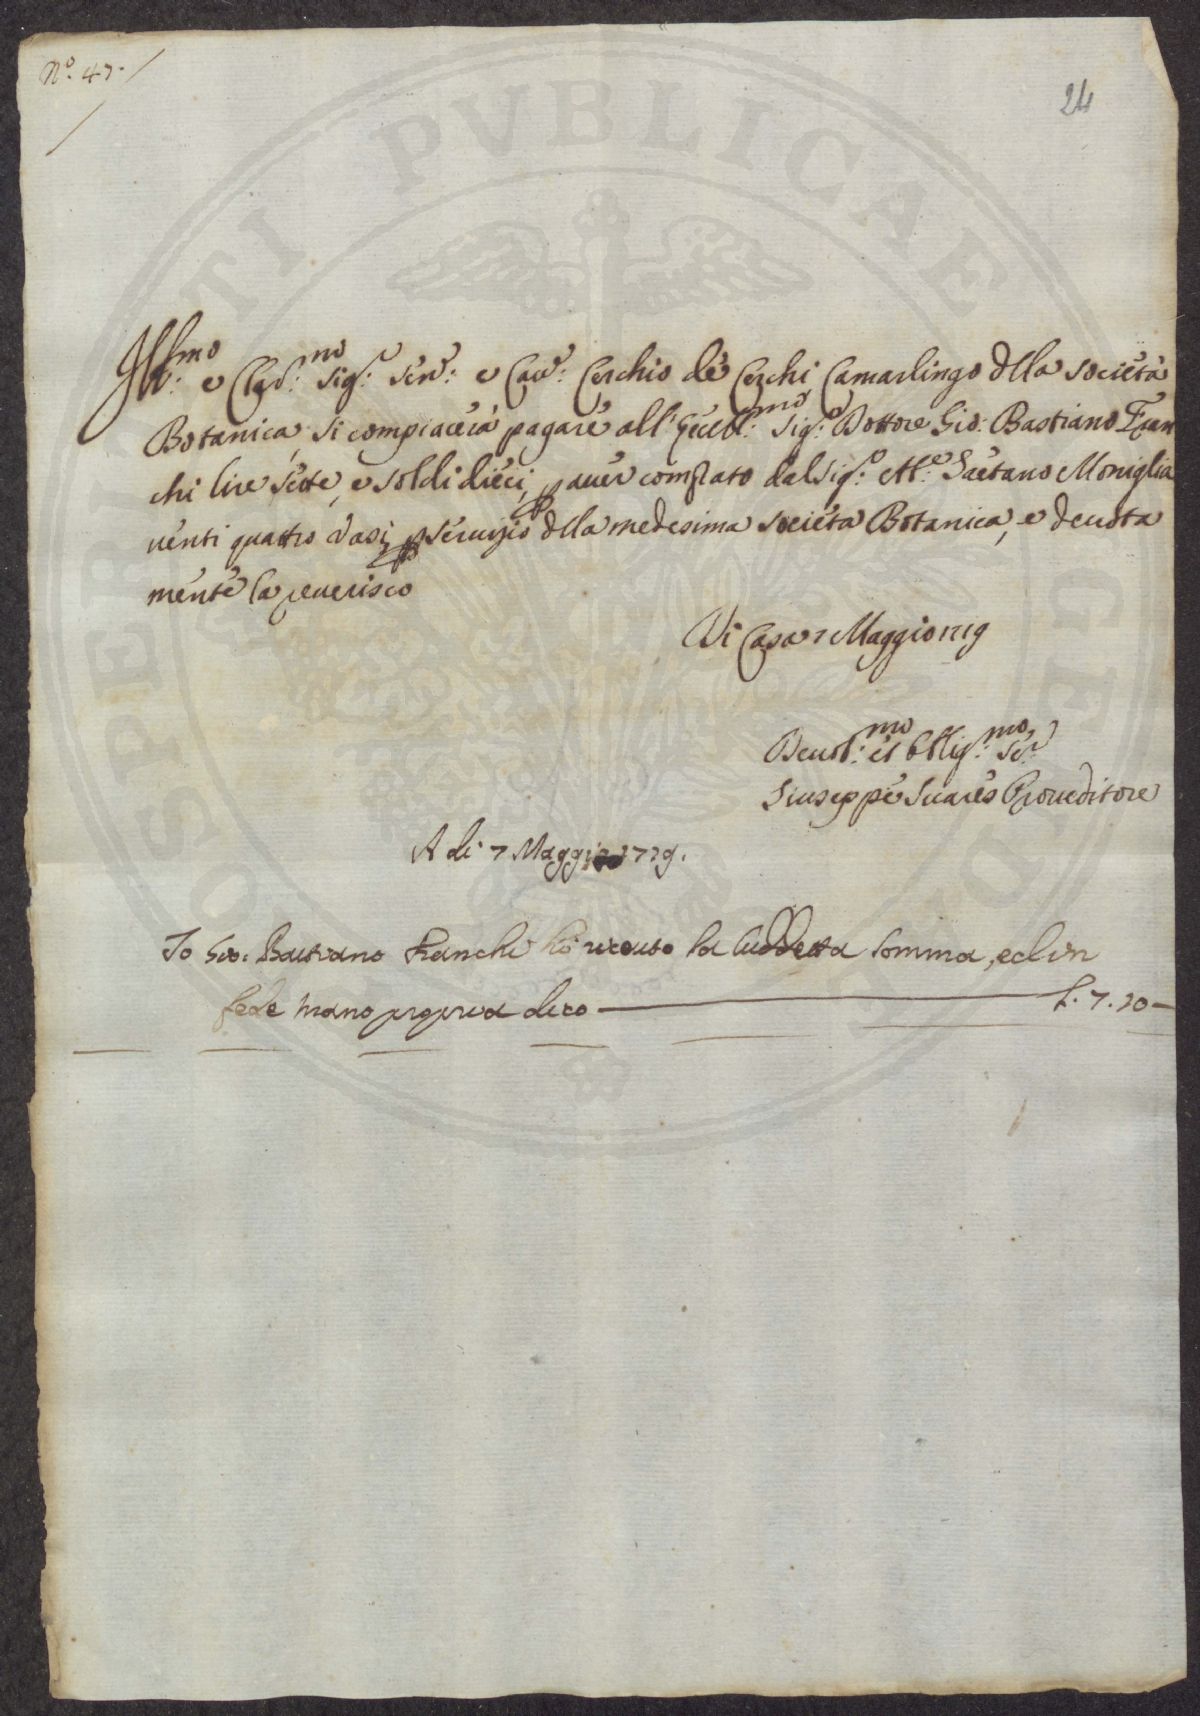 N.o 47.
24
Ill:mo e Clar:mo Sig:re Sen:re e Cav:re Cerchio de Cerchi Camarlingo dlla Società
Botanica, si compiacerà pagare all' Eccell:mo Sig:re Dottore Gio: Bastiano Fran
chi lire sette, e soldi dieci, p aver comprato dal Sig:re Ab:e Gaetano Moniglia
venti quattro Vasi, p servizio dlla medesima Società Botanica, e devota
mente la reverisco
Di Casa 7 Maggio 1719
Devot:mo et Obblig:mo Se:re
Giuseppe Suares Proveditore
A di 7 Maggio 1719.
Io Gio: Bastiano Franchi hò riceuto la suddetta somma, ed in
fede mano propria dico — L. 7. 10 —
PERITI PVBLICAE